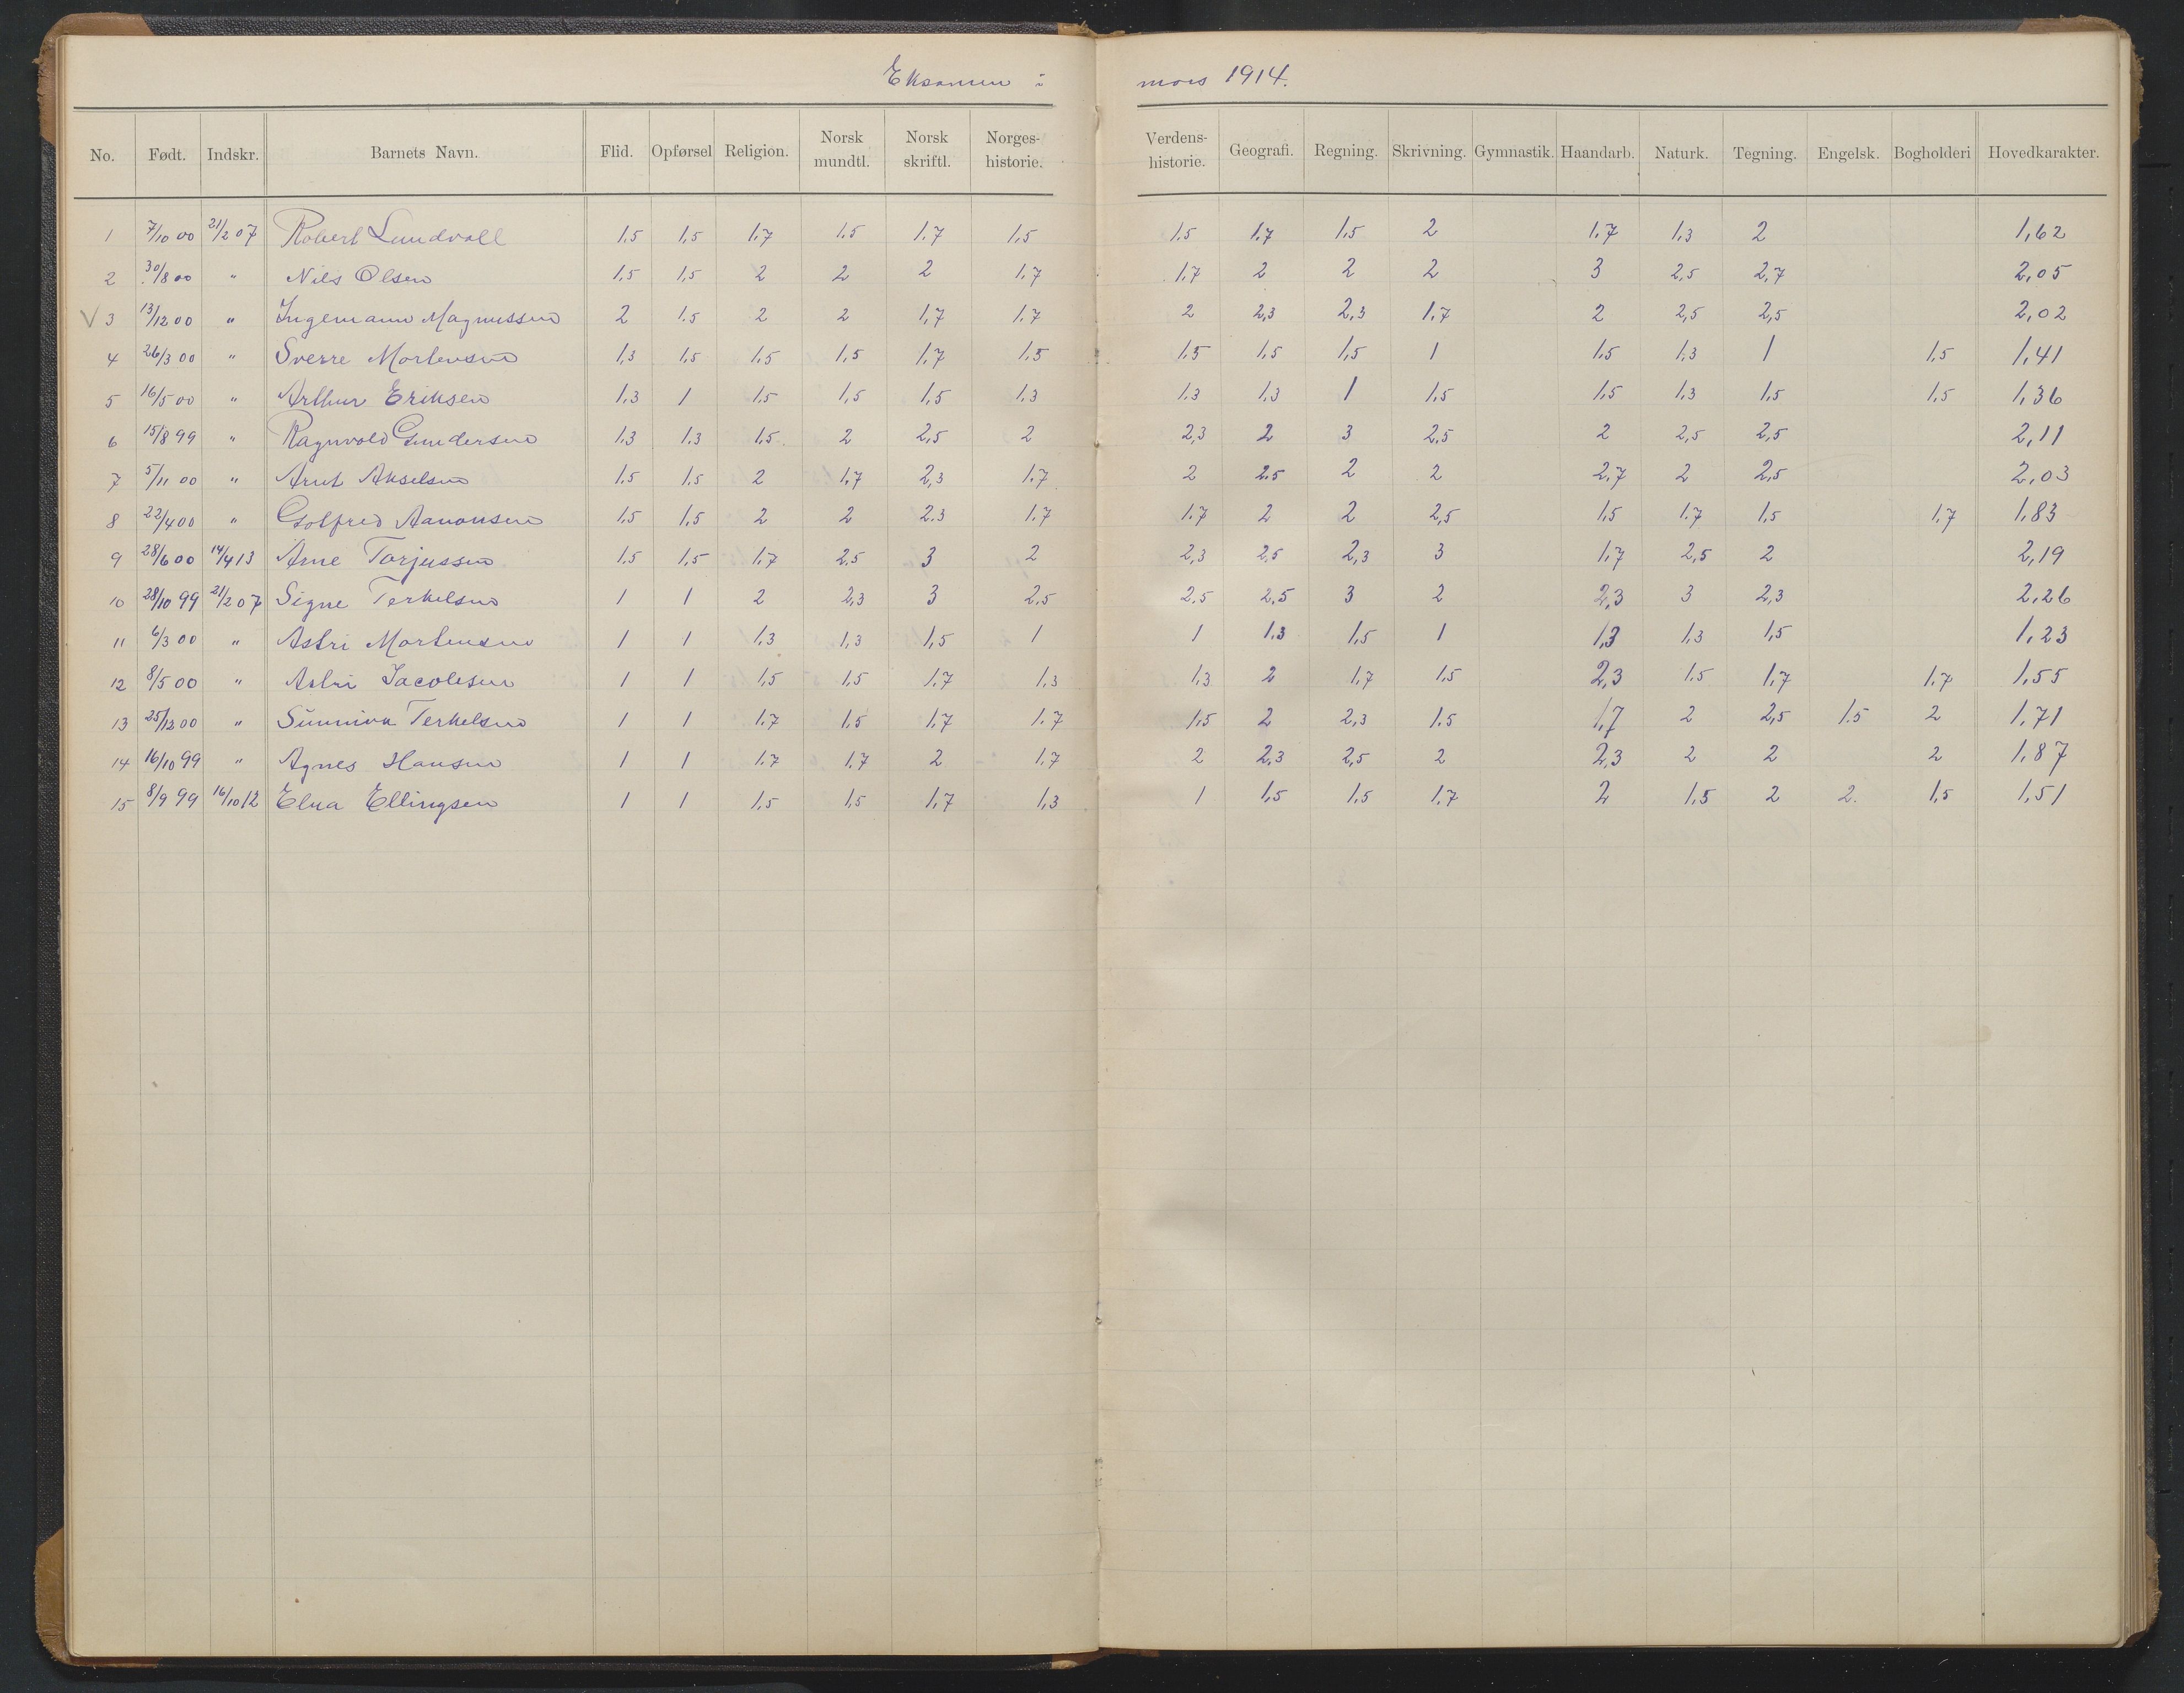 Eksamen i mars 1914.
No. Født. Indskr. Barnets Navn. Flid. Opførsel Religion. Norsk mundtl. Norsk skriftl. Norges-historie. Verdens-historie. Geografi. Regning. Skrivning. Gymnastik. Haandarb. Naturk. Tegning. Engelsk. Bogholderi Hovedkarakter.
1 7/10 00 21/2 07 Robert Lundvall 1,5 1,5 1,7 1,5 1,7 1,5 1,5 1,7 1,5 2 1,7 1,3 2 1,62
2 30/8 00 " Nils Olsen 1,5 1,5 2 2 2 1,7 1,7 2 2 2 3 2,5 2,7 2,05
V 3 13/12 00 " Ingemann Magnussen 2 1,5 2 2 1,7 1,7 2 2,3 2,3 1,7 2 2,5 2,5 2,02
4 26/3 00 " Sverre Mortensen 1,3 1,5 1,5 1,5 1,7 1,5 1,5 1,5 1,5 1 1,5 1,3 1 1,5 1,41
5 16/5 00 " Arthur Eriksen 1,3 1 1,5 1,5 1,5 1,3 1,3 1,3 1 1,5 1,5 1,3 1,5 1,5 1,36
6 15/8 99 " Ragnvald Gundersen 1,3 1,3 1,5 2 2,5 2 2,3 2 3 2,5 2 2,5 2,5 2,11
7 5/11 00 " Arnt Akselsen 1,5 1,5 2 1,7 2,3 1,7 2 2,5 2 2 2,7 2 2,5 2,03
8 22/4 00 " Golfred Aanonsen 1,5 1,5 2 2 2,3 1,7 1,7 2 2 2,5 1,5 1,7 1,5 1,7 1,83
9 28/6 00 14/4 13 Arne Torjussen 1,5 1,5 1,7 2,5 3 2 2,3 2,5 2,3 3 1,7 2,5 2 2,19
10 28/10 99 21/2 07 Signe Terkelsen 1 1 2 2,3 3 2,5 2,5 2,5 3 2 2,3 3 2,3 2,26
11 6/3 00 " Astri Mortensen 1 1 1,3 1,3 1,5 1 1 1,3 1,5 1 1,3 1,3 1,5 1,23
12 8/5 00 " Astri Jacobsen 1 1 1,5 1,5 1,7 1,3 1,3 2 1,7 1,5 2,3 1,5 1,7 1,7 1,55
13 25/12 00 " Sunniva Terkelsen 1 1 1,7 1,5 1,7 1,7 1,5 2 2,3 1,5 1,7 2 2,5 1,5 2 1,71
14 16/10 99 " Agnes Hansen 1 1 1,7 1,7 2 1,7 2 2,3 2,5 2 2,3 2 2 2 1,87
15 8/9 99 16/10 12 Elna Ellingsen 1 1 1,5 1,5 1,7 1,3 1 1,5 1,5 1,7 2 1,5 2 2. 1,5 1,51